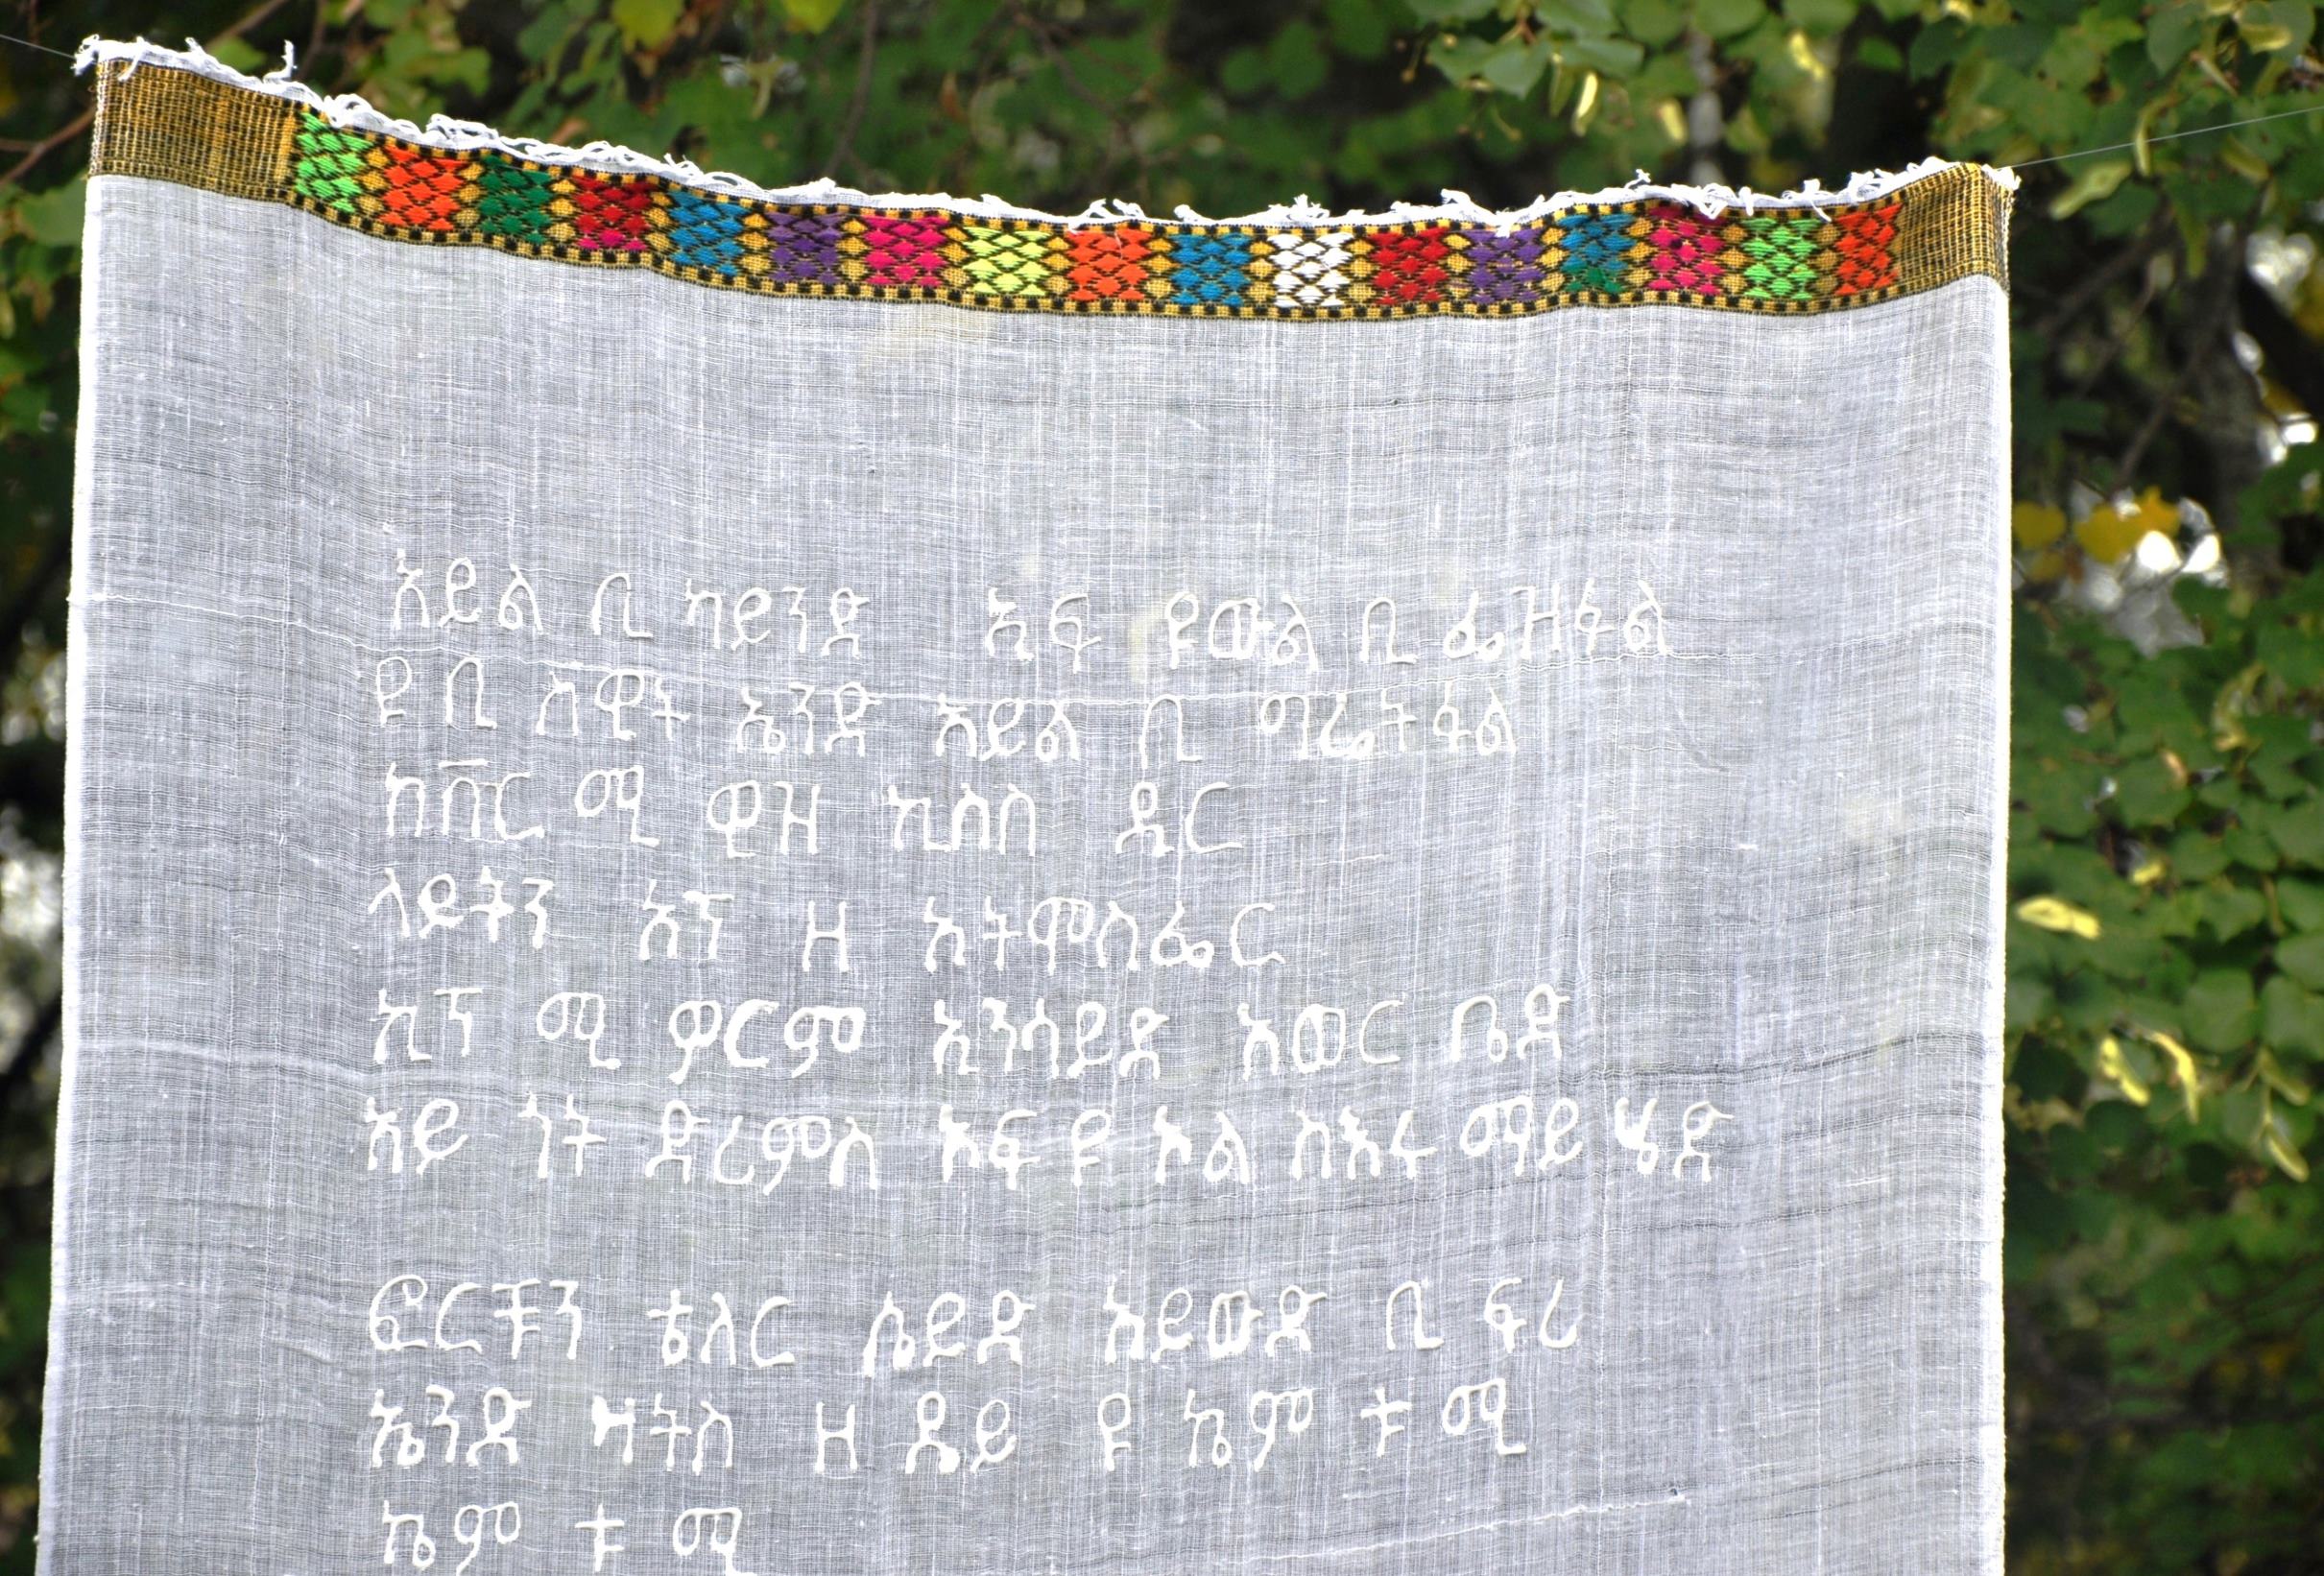 አይል ቢ ካይንድ ኢፍ ዩውል ቢ ፌዝፋል
ዩ ቢ ስዊት ኤንድ አይል ቢ ግሬትፋል
ከቨር ሚ ዊዝ ኪስስ ዲር
ላይትን አፕ ዘ አትሞስፌር
ኪፕ ሚ ዎርም ኢንሳይድ አወር ቤድ
አይ ጎት ድሪምስ ኦፍ ዩ ኦል ስእሩ ማይ ሄድ
ፎርቹን ቴለር ሴይድ አይውድ ቢ ፍሪ
ኤንድ ዛትስ ዘ ዴይ ዩ ኬም ቱ ሚ
ኬም ቱ ሚ